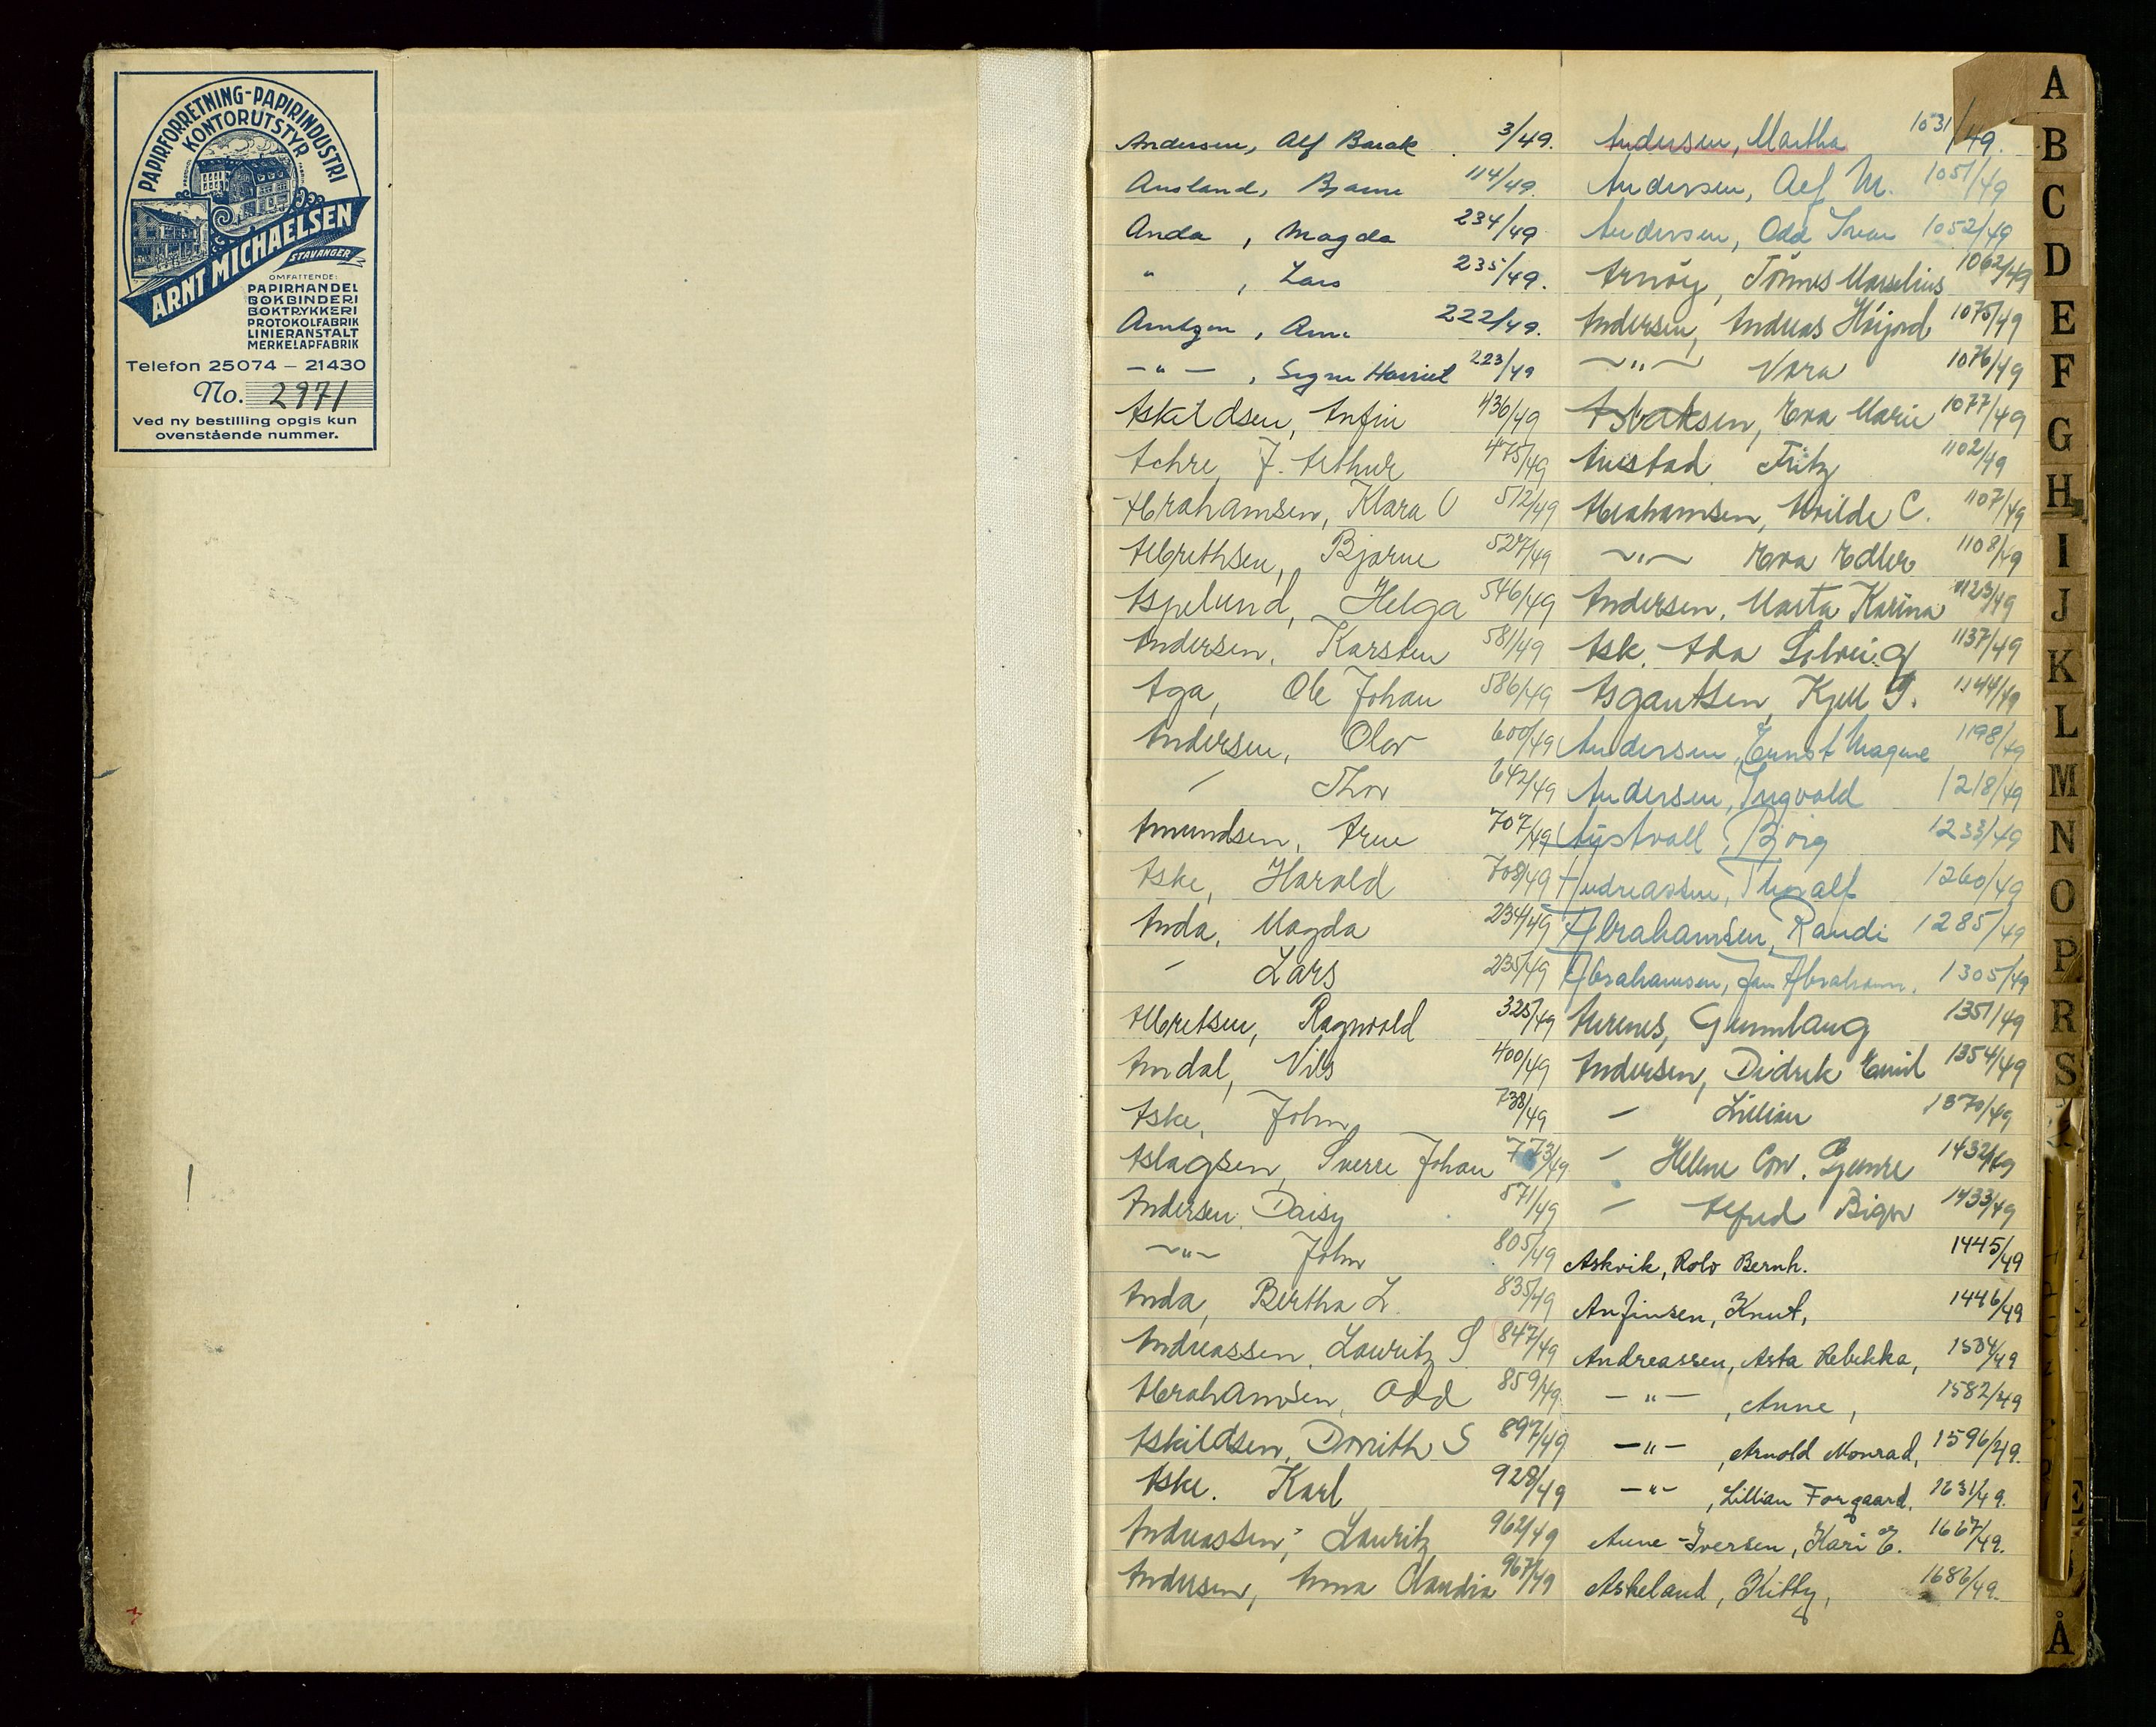 PAPIRFORRETNING-PAPIRINDUSTRI
KONTORUTSTYR
ARNT MICHAELSEN
STAVANGER
OMFATTENDE:
PAPIRHANDEL
BOKBINDERI
BOKTRYKKERI
PROTOKOLFABRIK
LINIERANSTALT
MERKELAPFABRIK
Telefon 25074 – 21430
No. 2971
Ved ny bestilling opgis kun
ovenstående nummer.
Andersen, Alf Barak 3/49.
Ausland, Bjarne 114/49.
Anda, Magda 234/49
" , Lars 235/49.
Arntzen, Arne 222/49.
—"— , Signe Harriet 223/49
Askildsen, Anfin 436/49
Achre, J. Arthur 475/49
Abrahamsen, Klara O 512/49
Albrethsen, Bjarne 527/49
Aspelund, Helga 546/49
Andersen, Karsten 581/49
Aga, Ole Johan 586/49
Andersen, Olav 600/49
— Thor 642/49
Amundsen, Arne 707/49
Aske, Harald 708/49
Anda, Magda 234/49
— Lars 235/49
Albretsen, Ragnvald 325/49
Amdal, Nils 400/49
Aske, John 738/49
Aslagsen, Sverre Johan 773/49
Andersen, Daisy 571/49
—"— John 805/49
Anda, Bertha L. 835/49
Andreassen, Lauritz S 847/49
Abrahamsen, Odd 859/49
Askildsen, Dorrith S 897/49
Aske. Karl 928/49
Andreassen, Lauritz 962/49
Andersen, Anna Claudia 967/49
Andersen, Martha 1031/49.
Andersen, Alf M. 1051/49
Andersen, Odd Ivar 1052/49
Arnøy, Tönnes Marselius 1062/49
Andersen, Andreas Höijord 1075/49
—"— Vara 1076/49
Asbaksen, Eva Marie 1077/49
Austad, Fritz 1102/49
Abrahamsen, Alvilde C. 1107/49
—"— Eva Edler 1108/49
Andersen, Marta Karina 1123/49
Ask, Ada Solveig 1137/49
Asgautsen, Kjell G. 1144/49
Andersen, Ernst Magne 1198/49
Andersen, Ingvald 1218/49
Austvoll, Bjørg 1233/49
Andreassen, Thoralf 1260/49
Abrahamsen, Randi 1285/49
Abrahamsen, Jan Abraham. 1305/49
Aarenes, Gunnlaug 1351/49
Andersen, Didrik Emil 1354/49
— Lillian 1370/49
— Helene Con. 1432/49
— Alfred Biger 1433/49
Askvik, Rolv Bernh. 1445/49
Anfinsen, Knut, 1446/49
Andreassen, Asta Rebekka, 1504/49
—"— , Anne, 1582/49
—"— , Arnold Monrad, 1596/49.
—"— , Lillian Forgaard, 1631/49.
Aune-Iversen, Kari E. 1667/49.
Askeland, Kitty, 1686/49.
A
B
C
D
E
F
G
H
I
J
K
L
M
N
O
P
R
S
Å